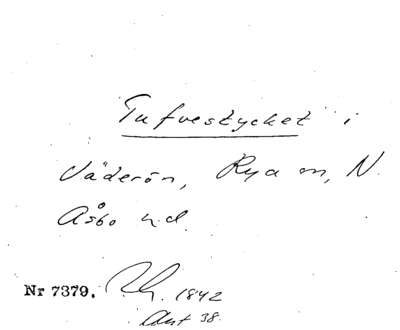 "Tufvestycket" i
Väderön, Rya sn, N.
Åsbo hd.
Nr 7379. 1842
Avt 38.